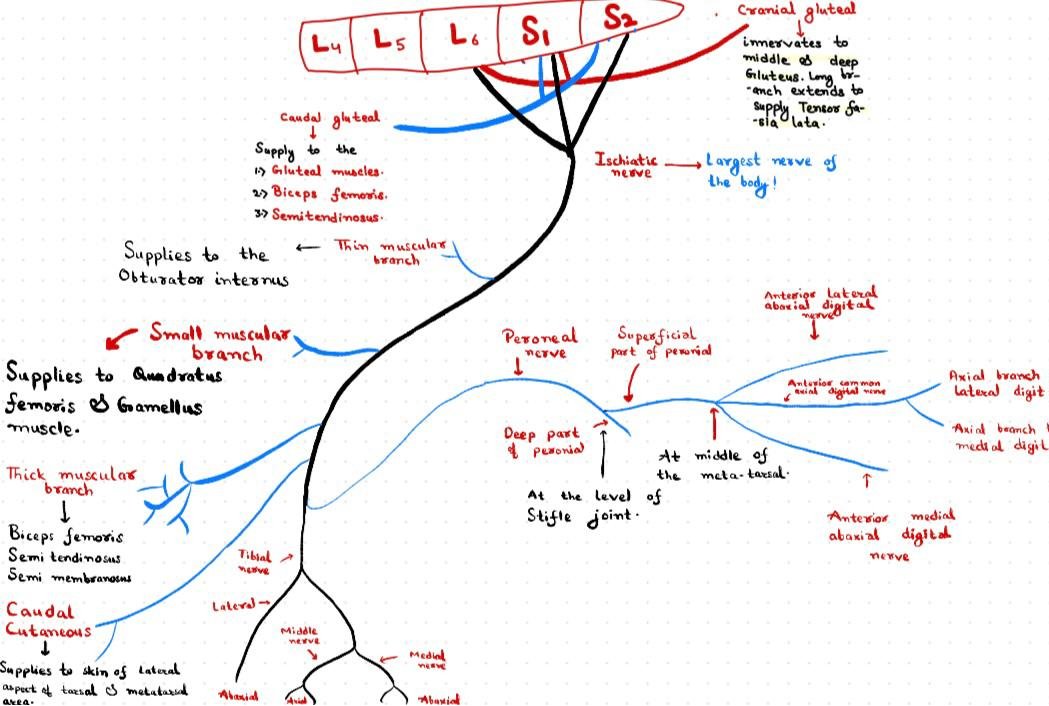 L4 L5 L6 S1 S2
Cranial gluteal
innervates to
middle & deep
Gluteus. Long br-
-anch extends to
Supply Tensor fa-
-sia lata.
Caudal gluteal
Supply to the
1.) Gluteal muscles.
2.) Biceps femoris.
3.) Semitendinosus.
Ischiatic
nerve
Largest nerve of
the body!
Thin muscular
branch
Supplies to the
Obturator internus
Small muscular
branch
Supplies to Quadratus
femoris & Gamellus
muscle.
Thick muscular
branch
Biceps femoris
Semi tendinosus
Semi membranosus
Caudal
Cutaneous
Supplies to skin of lateral
aspect of tarsal & metatarsal
area.
Peroneal
nerve
Superficial
part of peronial
Deep part
of peronial
At the level of
Stifle joint.
At middle of
the meta-tarsal.
Anterior lateral
abaxial digital
nerve
Anterior common
axial digital nerve
Axial branch
lateral digit
Axial branch
medial digit
Anterior medial
abaxial digital
nerve
Tibial
nerve
Lateral
Middle
nerve
Medial
nerve
Abaxial
Axial
Abaxial